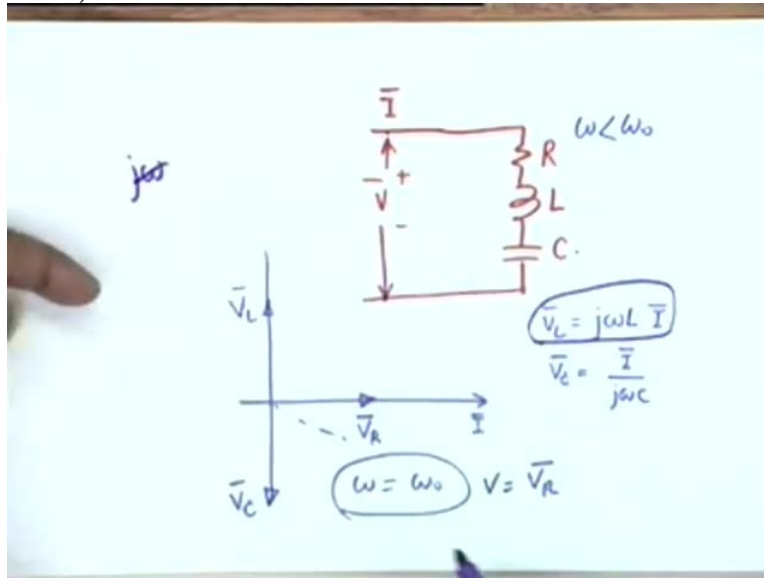 Ī
ω<ω₀
jω
R
V̄
+
-
L
C.
V̄_L
V̄_L = jωL Ī
V̄_C = Ī/jωC
V̄_R
Ī
V̄_C
ω = ω₀
V = V̄_R